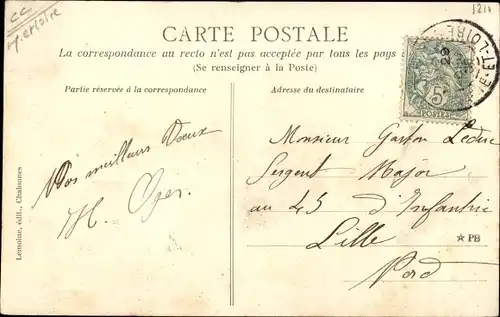 CC
CARTE POSTALE
La correspondance au recto n'est pas acceptée par tous les pays
(Se renseigner à la Poste)
Partie réservée à la correspondance
Adresse du destinataire
ET-LOIRE
5
POSTES
Nos meilleurs Vœux
H. Oger
Monsieur Gaston Leduc
Sergent Major
au 43 d'Infantrie
Lille
Nord
★ PB
Lemoine, édit., Chalonnes